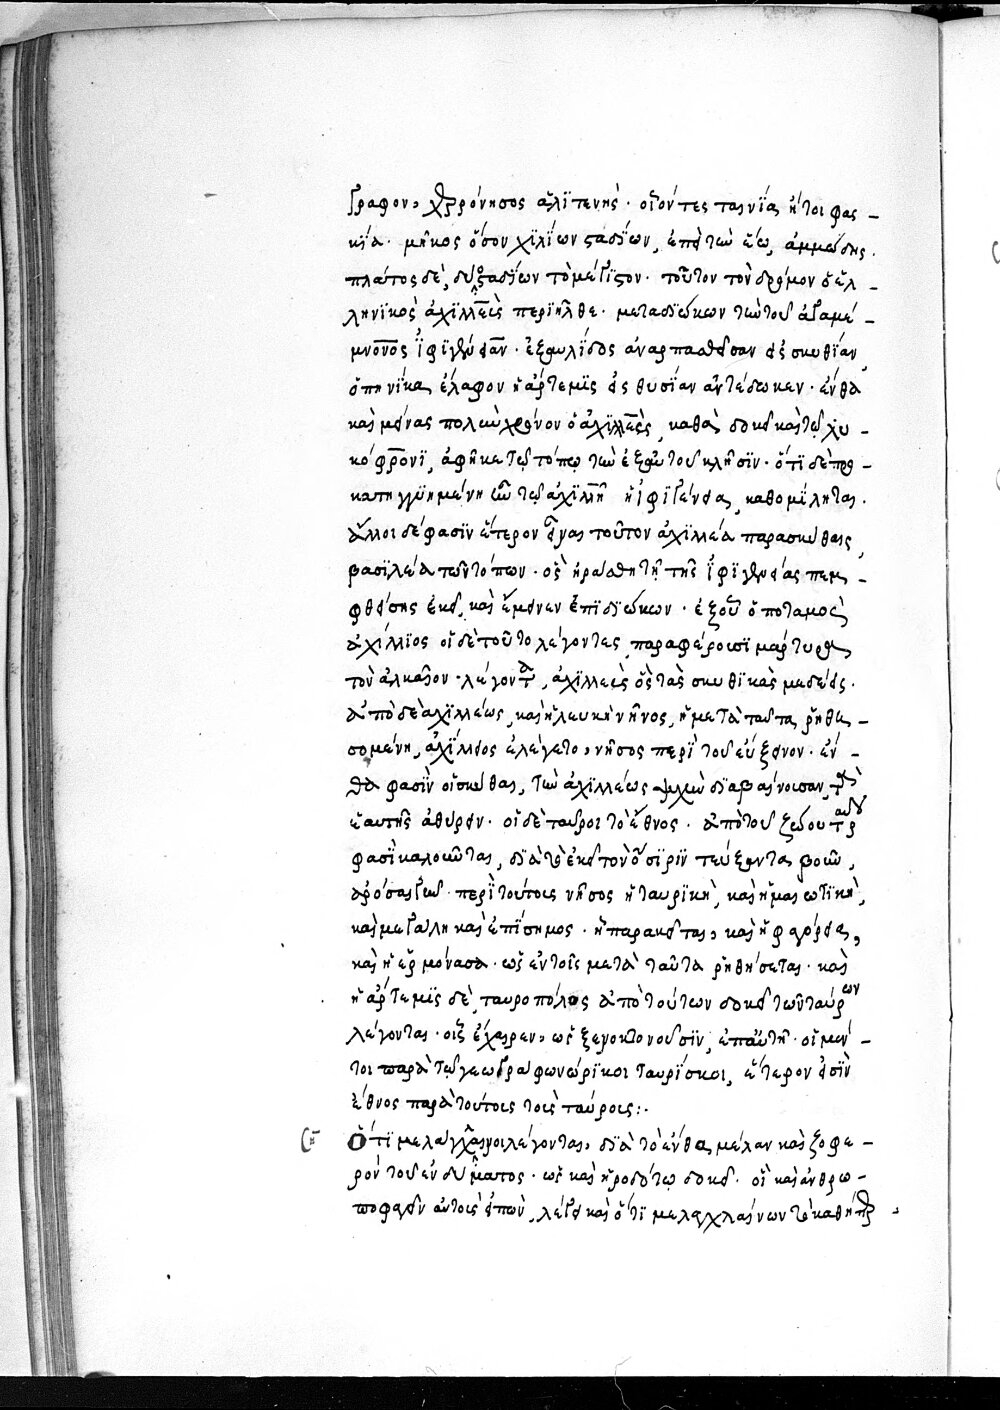 γραφον, χερρόνησος ἁλϊτενής · οἷον τὲς ταινία ἤτοι φας -
κία · μῆκος ὅσον χιλίων σταδίων, ἐπὶ τὴν ἕω, ἀμμώδης .
πλάτος δὲ, δύο σταδίων τὸ μέγιστον · τοῦτον τὸν δρόμον ὁ ἑλ -
ληνικὸς ἀχϊλλεὺς περιῆλθε · μεταδϊώκων τὴν τοῦ ἀγαμέ -
μνονος ἰφϊγένειαν · ἐξ αυλίδος ἀναρπασθεῖσαν εἰς σκυθίαν,
ὁπηνίκα ἔλαφον ἡ ἄρτεμϊς εἰς θυσίαν ἀντέδωκεν · ἔνθα
καὶ μείνας πολὺν χρόνον ὁ ἀχϊλλεὺς, καθὰ δοκεῖ καὶ τῷ λυ -
κόφρονϊ, ἀφῆκε τῷ τόπῳ τὴν ἐξ αὐτοῦ κλῆσϊν · ὅτϊ δὲ προ -
κατηγγϋημένη ἦν τῷ ἀχϊλλεῖ ἡ ἰφϊγένεια, καθομίληται .
ἄλλοι δέ φασϊν ἕτερον εἶναι τοῦτον ἀχϊλλέα παρὰ σκύθαις,
βασϊλέα τῶν τόπων · ὃς ἠράσθη τὲ τῆς ἰφϊγενείας πεμ -
φθείσης ἐκεῖ, καὶ ἔμεινεν ἐπϊδϊώκων · ἐξ οὗ ὁ τόπος
ἀχίλλϊος οἱ δὲ τοῦτο λέγοντες, παραφέρουσϊ μάρτυρα
τὸν ἀλκαῖον · λέγοντα, ἀχϊλλεὺς ὃς τᾶς σκυθϊκᾶς μεδεὶς .
ἀπὸ δὲ ἀχϊλλέως, καὶ ἡ λευκὴ νῆσος, ἡ μετὰ ταῦτα ῥηθη -
σομένη, ἀχίλλειος ἐλέγετο, νῆσος περὶ τὸν εὔξεινον · ἔν -
θα φασὶν οἱ σκύθαι, τὴν ἀχϊλλέως ψυχὴν δϊαβαίνουσαν, τὰς
ἑαυτῆς ἀθύρειν · οἱ δὲ ταῦροι τὸ ἔθνος · ἀπὸ τοῦ ζώου ταύρου
φασὶ καλοῦνται, δϊὰ τὸ ἐκεῖ τὸν ὄσϊρϊν ζεύξαντα βοῦν,
ἀρόσαι γῆν · περὶ τούτοις νῆσος ἡ ταυρϊκὴ, καὶ ἡ μαιωτϊκὴ,
καὶ μεγάλη καὶ ἐπίσημος · ᾗ παράκειται, καὶ ἡ φαγόρεια,
καὶ ἡ ἑρμόνασσα · ὡς ἐν τοῖς μετὰ ταῦτα ῥηθήσεται · καὶ
ἡ ἄρτεμϊς δὲ, ταυροπόλος ἀπὸ τούτων δοκεῖ τῶν ταύρων
λέγεσθαι · οἷς ἔχαιρεν, ὡς ξενοκτονοῦσϊν, ἐπ᾽ αὐτῇ · οἱ μέν -
τοι παρὰ τῷ γεωγράφῳ νώρικοι ταυρίσκοι, ἕτερον εἰσὶν
ἔθνος παρὰ τούτοις τοῖς ταύροις :.
Ὅτϊ μελάγχλαινοι λέγονται, δϊὰ τὸ ἔνθα μέλαν καὶ ζοφε -
ρὸν τοῦ ἐνδύματος · ὡς καὶ ἡροδότῳ δοκεῖ · οἳ καὶ ἀνθρω -
ποφαγεῖν αὐτοὺς εἰπὼν, λέγει καὶ ὅτϊ μελαγχλαίνων τὸ καθύπερ